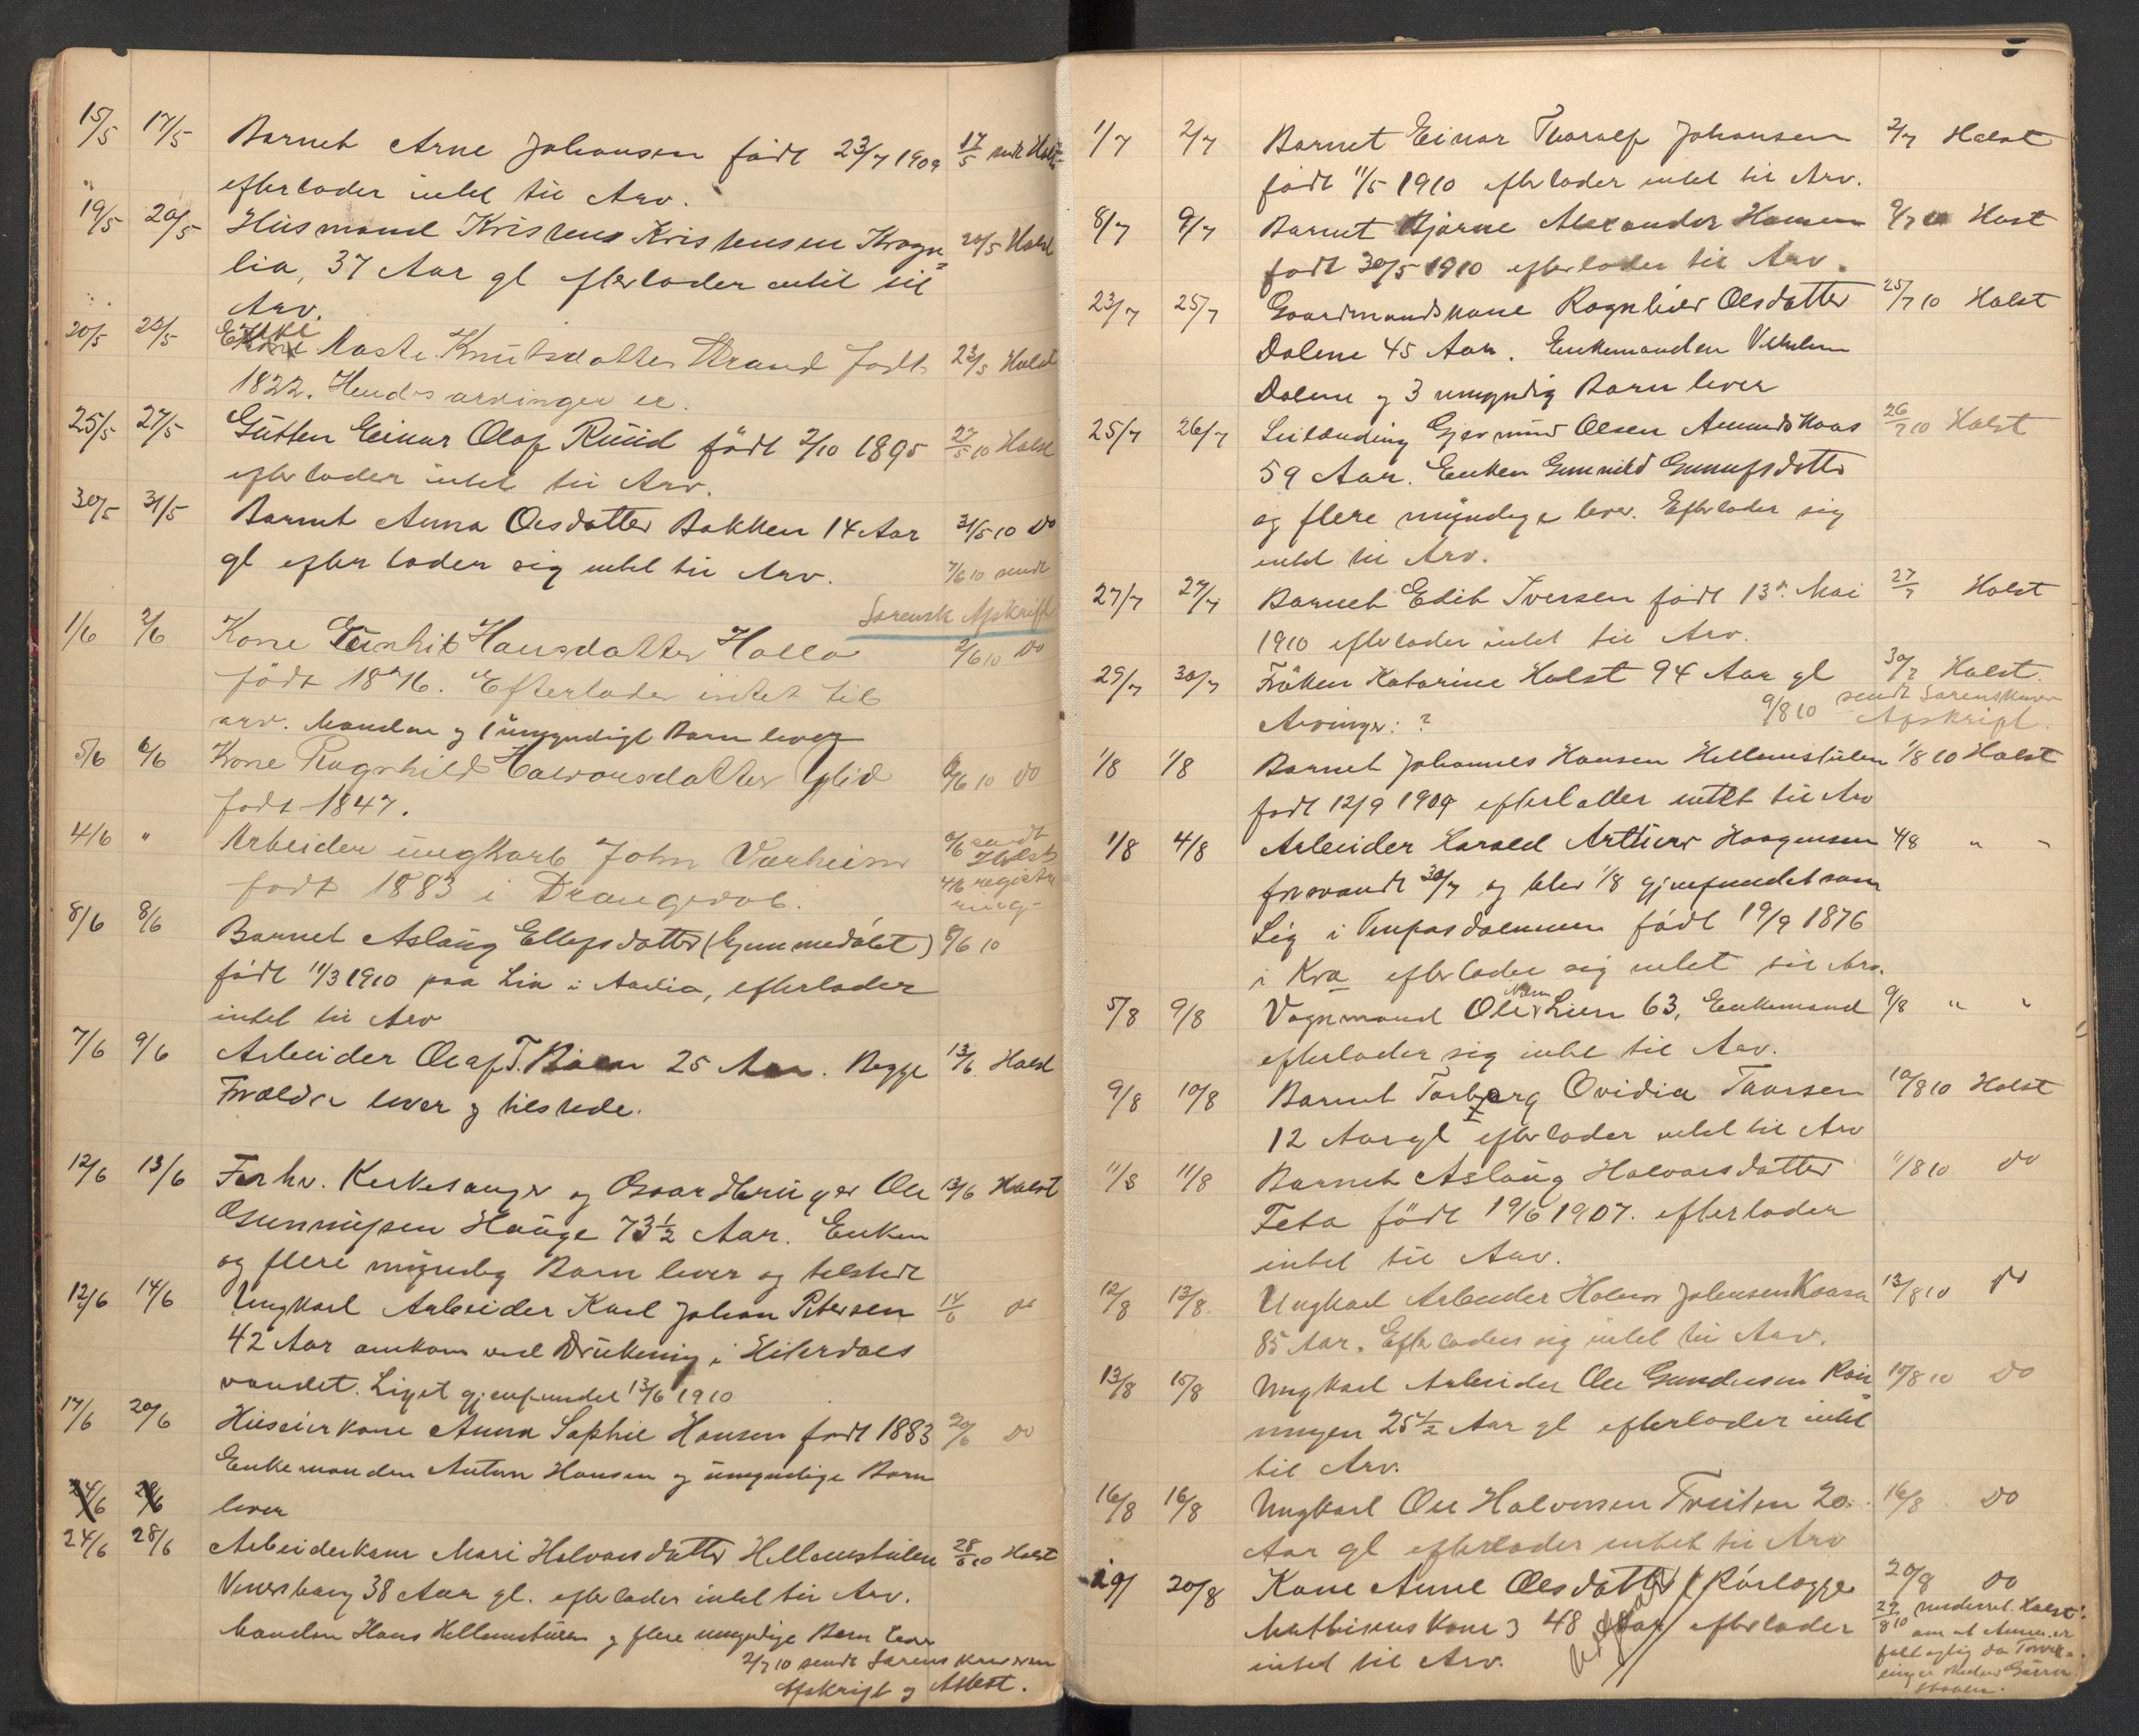 15/5 17/5 Barnet Arne Johansen födt 23/7 1909 17/5 sendt Holst
efterlader intet til Arv.
19/5 20/5 Husmand Kristens Kristensen Krogn= 20/5 Holst
lia, 37 Aar gl efterlader intet til
Arv.
20/5 23/5 Enke Aaste Knutsdatter Strand födt 23/5 Holst
1822. Hendes arvinger er.
25/5 27/5 Gutten Einar Olaf Ruud födt 2/10 1895 27/5 10 Holst
efterlader intet til Arv.
30/5 31/5 Barnet Anna Olsdatter Bakken 14 Aar 31/5 10 Do
gl efterlader sig intet til Arv. 7/6 10 sendt
Sorensk Afskrift
1/6 2/6 Kone Gunhild Hansdatter Holla 2/6 10 Do
födt 1876. Efterlader intet til
arv. Manden og 1 umyndigt Barn lever
5/6 6/6 Kone Ragnhild Halvorsdatter Glid 6/6 10 Do
födt 1847.
4/6 " Arbeider ungkarl John Værheim 6/6 sendt Holst
födt 1883 i Drangedal. 4/6 registrering
8/6 8/6 Barnet Aslaug Ellefsdatter (Gjømmedalet) 8/6 10
födt 11/3 1910 paa Lia i Aadlia, efterlader
intet til Arv
7/6 9/6 Arbeider Olaf T. Baan 25 Aar. Begge 13/6 Holst
Forældre lever og tilstede.
12/6 13/6 Forhv. Kirkesanger og Gaardbruger Ole 13/6 Holst
Gunnufsen Hauge 73½ Aar. Enken
og flere myndig Barn lever og tilstede
12/6 14/6 Ungkarl Arbeider Karl Johan Petersen 14/6 do
42 Aar omkom ved Drukning i Hiterdals
vandet. Liget gjenfundet 13/6 1910
17/6 20/6 Huseierkone Anna Sophie Hansen födt 1883 20/6 Do
Enkemanden Anton Hansen og umyndige Barn
24/6 28/6 lever
24/6 28/6 Arbeiderkone Mari Halvorsdatter Hellemstulen 28/6 10 Holst
38 Aar gl. efterlader intet til Arv.
Manden Hans Hellemstulen og flere umyndige Barn lever
2/7 10 sendt Sorenskriveren
Afskrift og Attest.
1/7 2/7 Barnet Einar Thoralf Johansen 2/7 Holst
födt 11/5 1910 efterlader intet til Arv.
8/7 9/7 Barnet Bjarne Alexander Hansen 9/7 10 Host
födt 30/5 1910 efterlader til Arv.
23/7 25/7 Gaardmandskone Ragnhild Olsdatter 25/7 10 Holst
Dalene 45 Aar. Enkemanden Vilhelm
Dalene og 3 umyndig Barn lever
25/7 26/7 Leilænding Gjermund Olsen Amundskaas 26/7 10 Holst
59 Aar. Enken Gunnild Gunnufsdatter
og flere myndige lever. Efterlader sig
intet til Arv.
27/7 27/7 Barnet Edit Iversen födt 13de Mai 27/7 Holst
1910 efterlader intet til Arv.
29/7 30/7 Fröken Katarine Holst 94 Aar gl 30/7 Holst.
Arvinger: ? 9/8 10 sendt Sorenskriver
Afskrift.
1/8 1/8 Barnet Johannes Hansen Hellemstulen 1/8 10 Holst
födt 12/9 1909 efterlader intet til Arv
1/8 4/8 Arbeider Harald Arthur Haagensen 4/8 " "
forsvandt 30/7 og blev 1/8 gjenfundet som
Lig i Tinfosdammen födt 19/9 1876
i Kra efterlader sig intet til Arv.
5/8 9/8 Vognmand Ole Lien 63, Enkemand 9/8 " "
efterlader sig intet til Arv.
9/8 10/8 Barnet Torbjørg Ovidia Thorsen 10/8 10 Holst
12 Aar gl efterlader intet til Arv
11/8 11/8 Barnet Aslaug Halvorsdatter 11/8 10 do
Feta födt 19/6 1907. efterlader
intet til Arv.
12/8 13/8 Ungkarl Arbeider Halvor Johnsen Kaasa 13/8 10 do
85 Aar. Efterlader sig intet til Arv.
13/8 15/8 Ungkarl Arbeider Ole Gundersen Røi= 15/8 10 Do
ningen 25½ Aar gl efterlader intet
til Arv.
16/8 16/8 Ungkarl Ole Halvorsen Treiten 20 16/8 Do
Aar gl efterlader intet til Arv
19/ 20/8 Kone Anne Olsdatter (Rörlægger 20/8 Do
Mathisens Kone) 48 Aar efterlader 29/8 10 underret. Holst
intet til Arv.